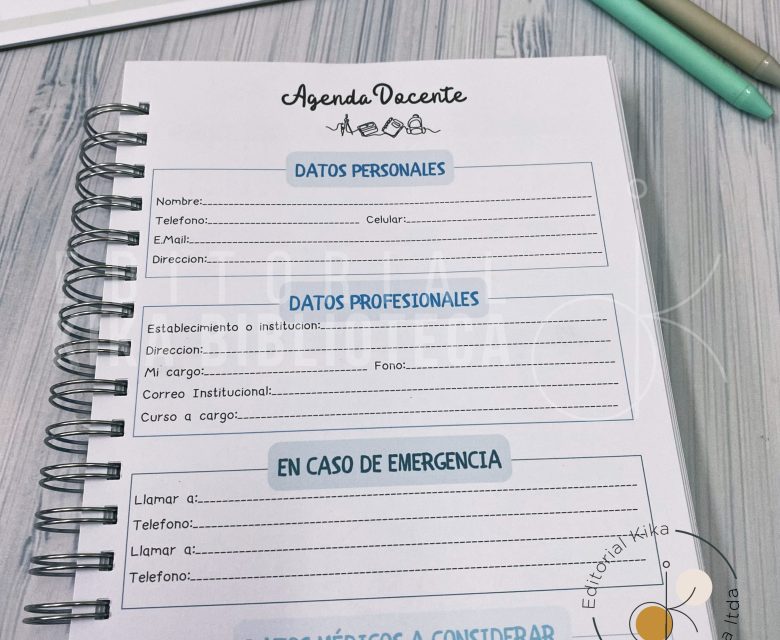 Agenda Docente
DATOS PERSONALES
Nombre:
Telefono: Celular:
E.Mail:
Direccion:
EDITORIAL
DATOS PROFESIONALES
Establecimiento o institucion:
Direccion:
KIKA BIBLIOTECA
Mi cargo: Fono:
Correo Institucional:
Curso a cargo:
EN CASO DE EMERGENCIA
Llamar a:
Telefono:
Llamar a:
Telefono:
Editorial Kika
a ltda
DATOS MÉDICOS A CONSIDERAR